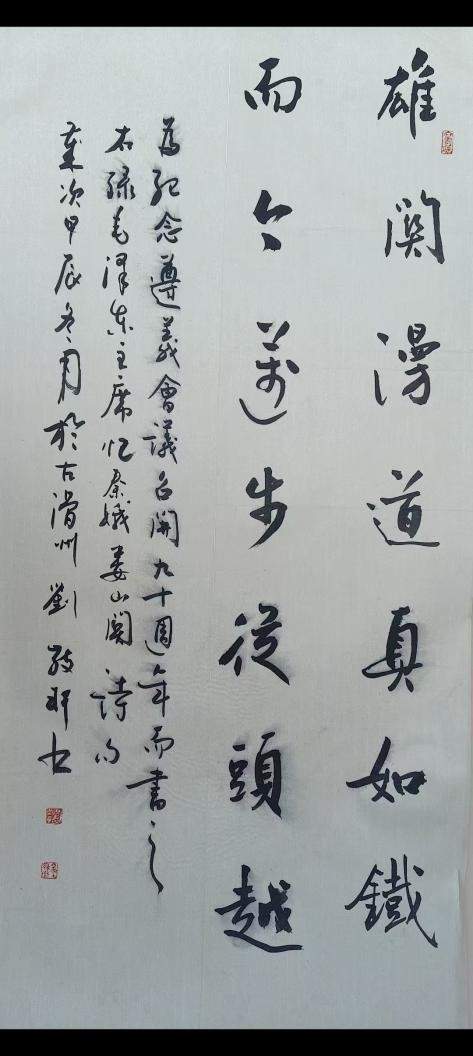 雄關漫道真如鐵
而今邁步從頭越
為紀念遵義會議召開九十週年而書之
右録毛澤東主席憶秦娥婁山關詩句
歲次甲辰冬月於古滑州劉書